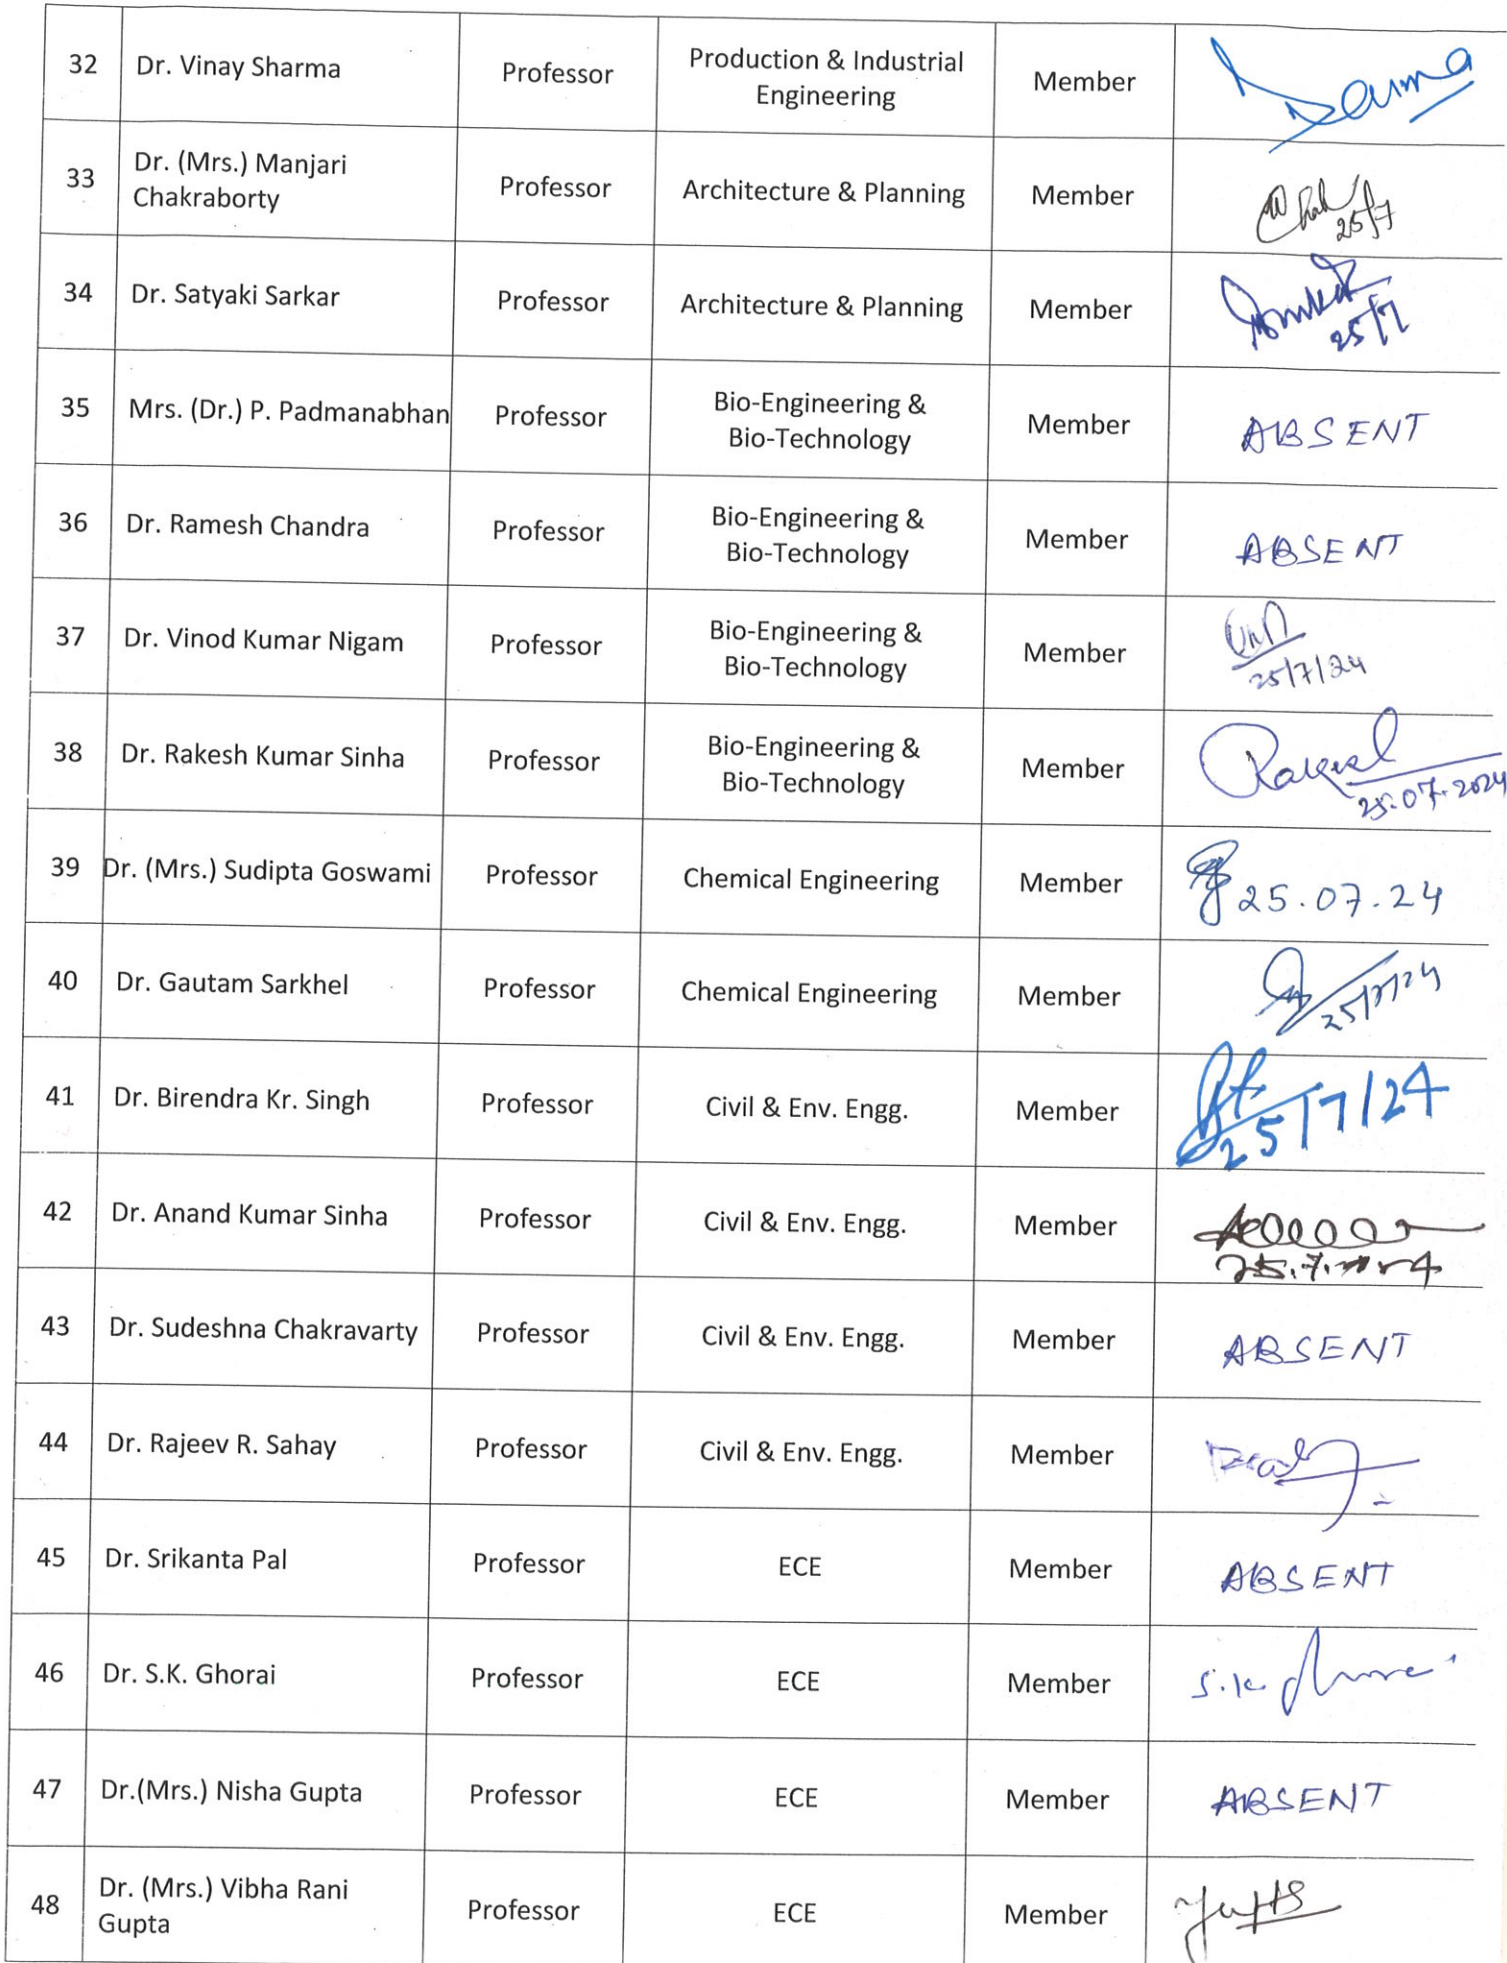 32 Dr. Vinay Sharma Professor Production & Industrial Member
Engineering
33 Dr. (Mrs.) Manjari Professor Architecture & Planning Member
Chakraborty 25/7
34 Dr. Satyaki Sarkar Professor Architecture & Planning Member
25/7
35 Mrs. (Dr.) P. Padmanabhan Professor Bio-Engineering & Member ABSENT
Bio-Technology
36 Dr. Ramesh Chandra Professor Bio-Engineering & Member ABSENT
Bio-Technology
37 Dr. Vinod Kumar Nigam Professor Bio-Engineering & Member
Bio-Technology 25/7/24
38 Dr. Rakesh Kumar Sinha Professor Bio-Engineering & Member
Bio-Technology 25.07.2024
39 Dr. (Mrs.) Sudipta Goswami Professor Chemical Engineering Member 25.07.24
40 Dr. Gautam Sarkhel Professor Chemical Engineering Member 25/7/24
41 Dr. Birendra Kr. Singh Professor Civil & Env. Engg. Member 25/7/24
42 Dr. Anand Kumar Sinha Professor Civil & Env. Engg. Member
43 Dr. Sudeshna Chakravarty Professor Civil & Env. Engg. Member ABSENT
44 Dr. Rajeev R. Sahay Professor Civil & Env. Engg. Member
45 Dr. Srikanta Pal Professor ECE Member ABSENT
46 Dr. S.K. Ghorai Professor ECE Member S.K.
47 Dr.(Mrs.) Nisha Gupta Professor ECE Member ABSENT
48 Dr. (Mrs.) Vibha Rani Professor ECE Member
Gupta